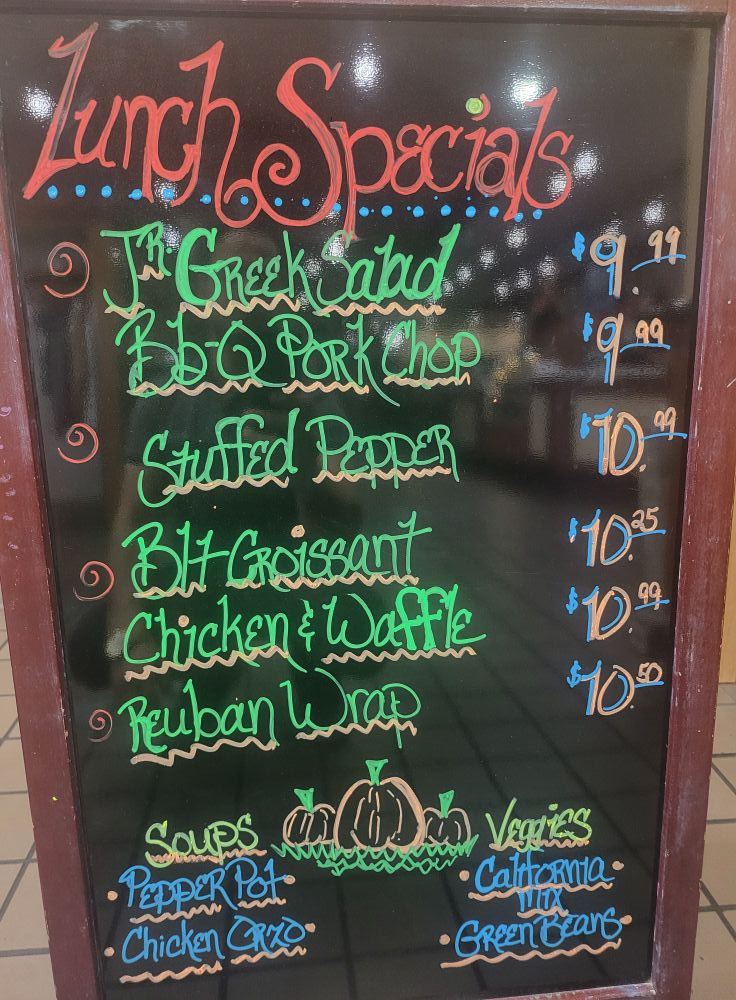 Lunch Specials
Jr. Greek Salad $9.99
Bb-Q Pork Chop $9.99
Stuffed Pepper $10.99
Blt Croissant $10.25
Chicken & Waffle $10.99
Reuban Wrap $10.50
Soups
Pepper Pot
Chicken Orzo
Veggies
California
mix
Green Beans